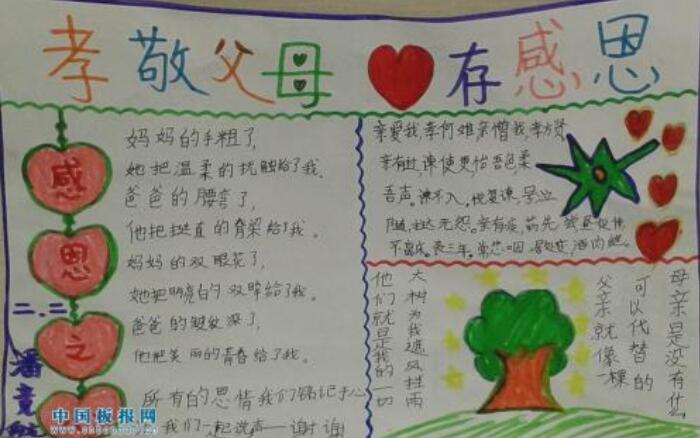 孝敬父母❤存感恩
感恩之
二.二
潘竟
妈妈的手粗了,
她把温柔的抚触给了我。
爸爸的腰弯了,
他把挺直的脊梁给了我。
妈妈的双眼花了,
她把明亮的双眸给了我。
爸爸的皱纹深了,
他把美丽的青春给了我。
所有的恩情我们铭记于心
我们一起说声一谢谢
亲爱我,孝何难亲憎我,孝方贤
亲有过谏使更怡吾色柔
吾声。谏不入,悦复谏,号泣
随,挞无怨。亲有疾,药先尝昼夜侍
不离床。丧三年。常悲咽居处变,酒肉绝。
母亲是没有什么
可以代替的
父亲就像一棵
大树为我遮风挡雨
他们就是我的一切
中国板报网